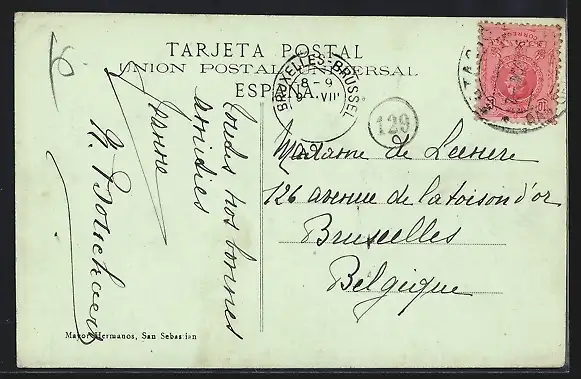 TARJETA POSTAL
UNION POSTAL UNIVERSAL
ESPAÑA
BRUXELLES-BRUSSEL
8-9
VII
129
Madame de
126 avenue de la toison d'or
Bruxelles
Belgique
toutes nos bonnes
amitiés
Jeanne
Mayor Hermanos, San Sebastian